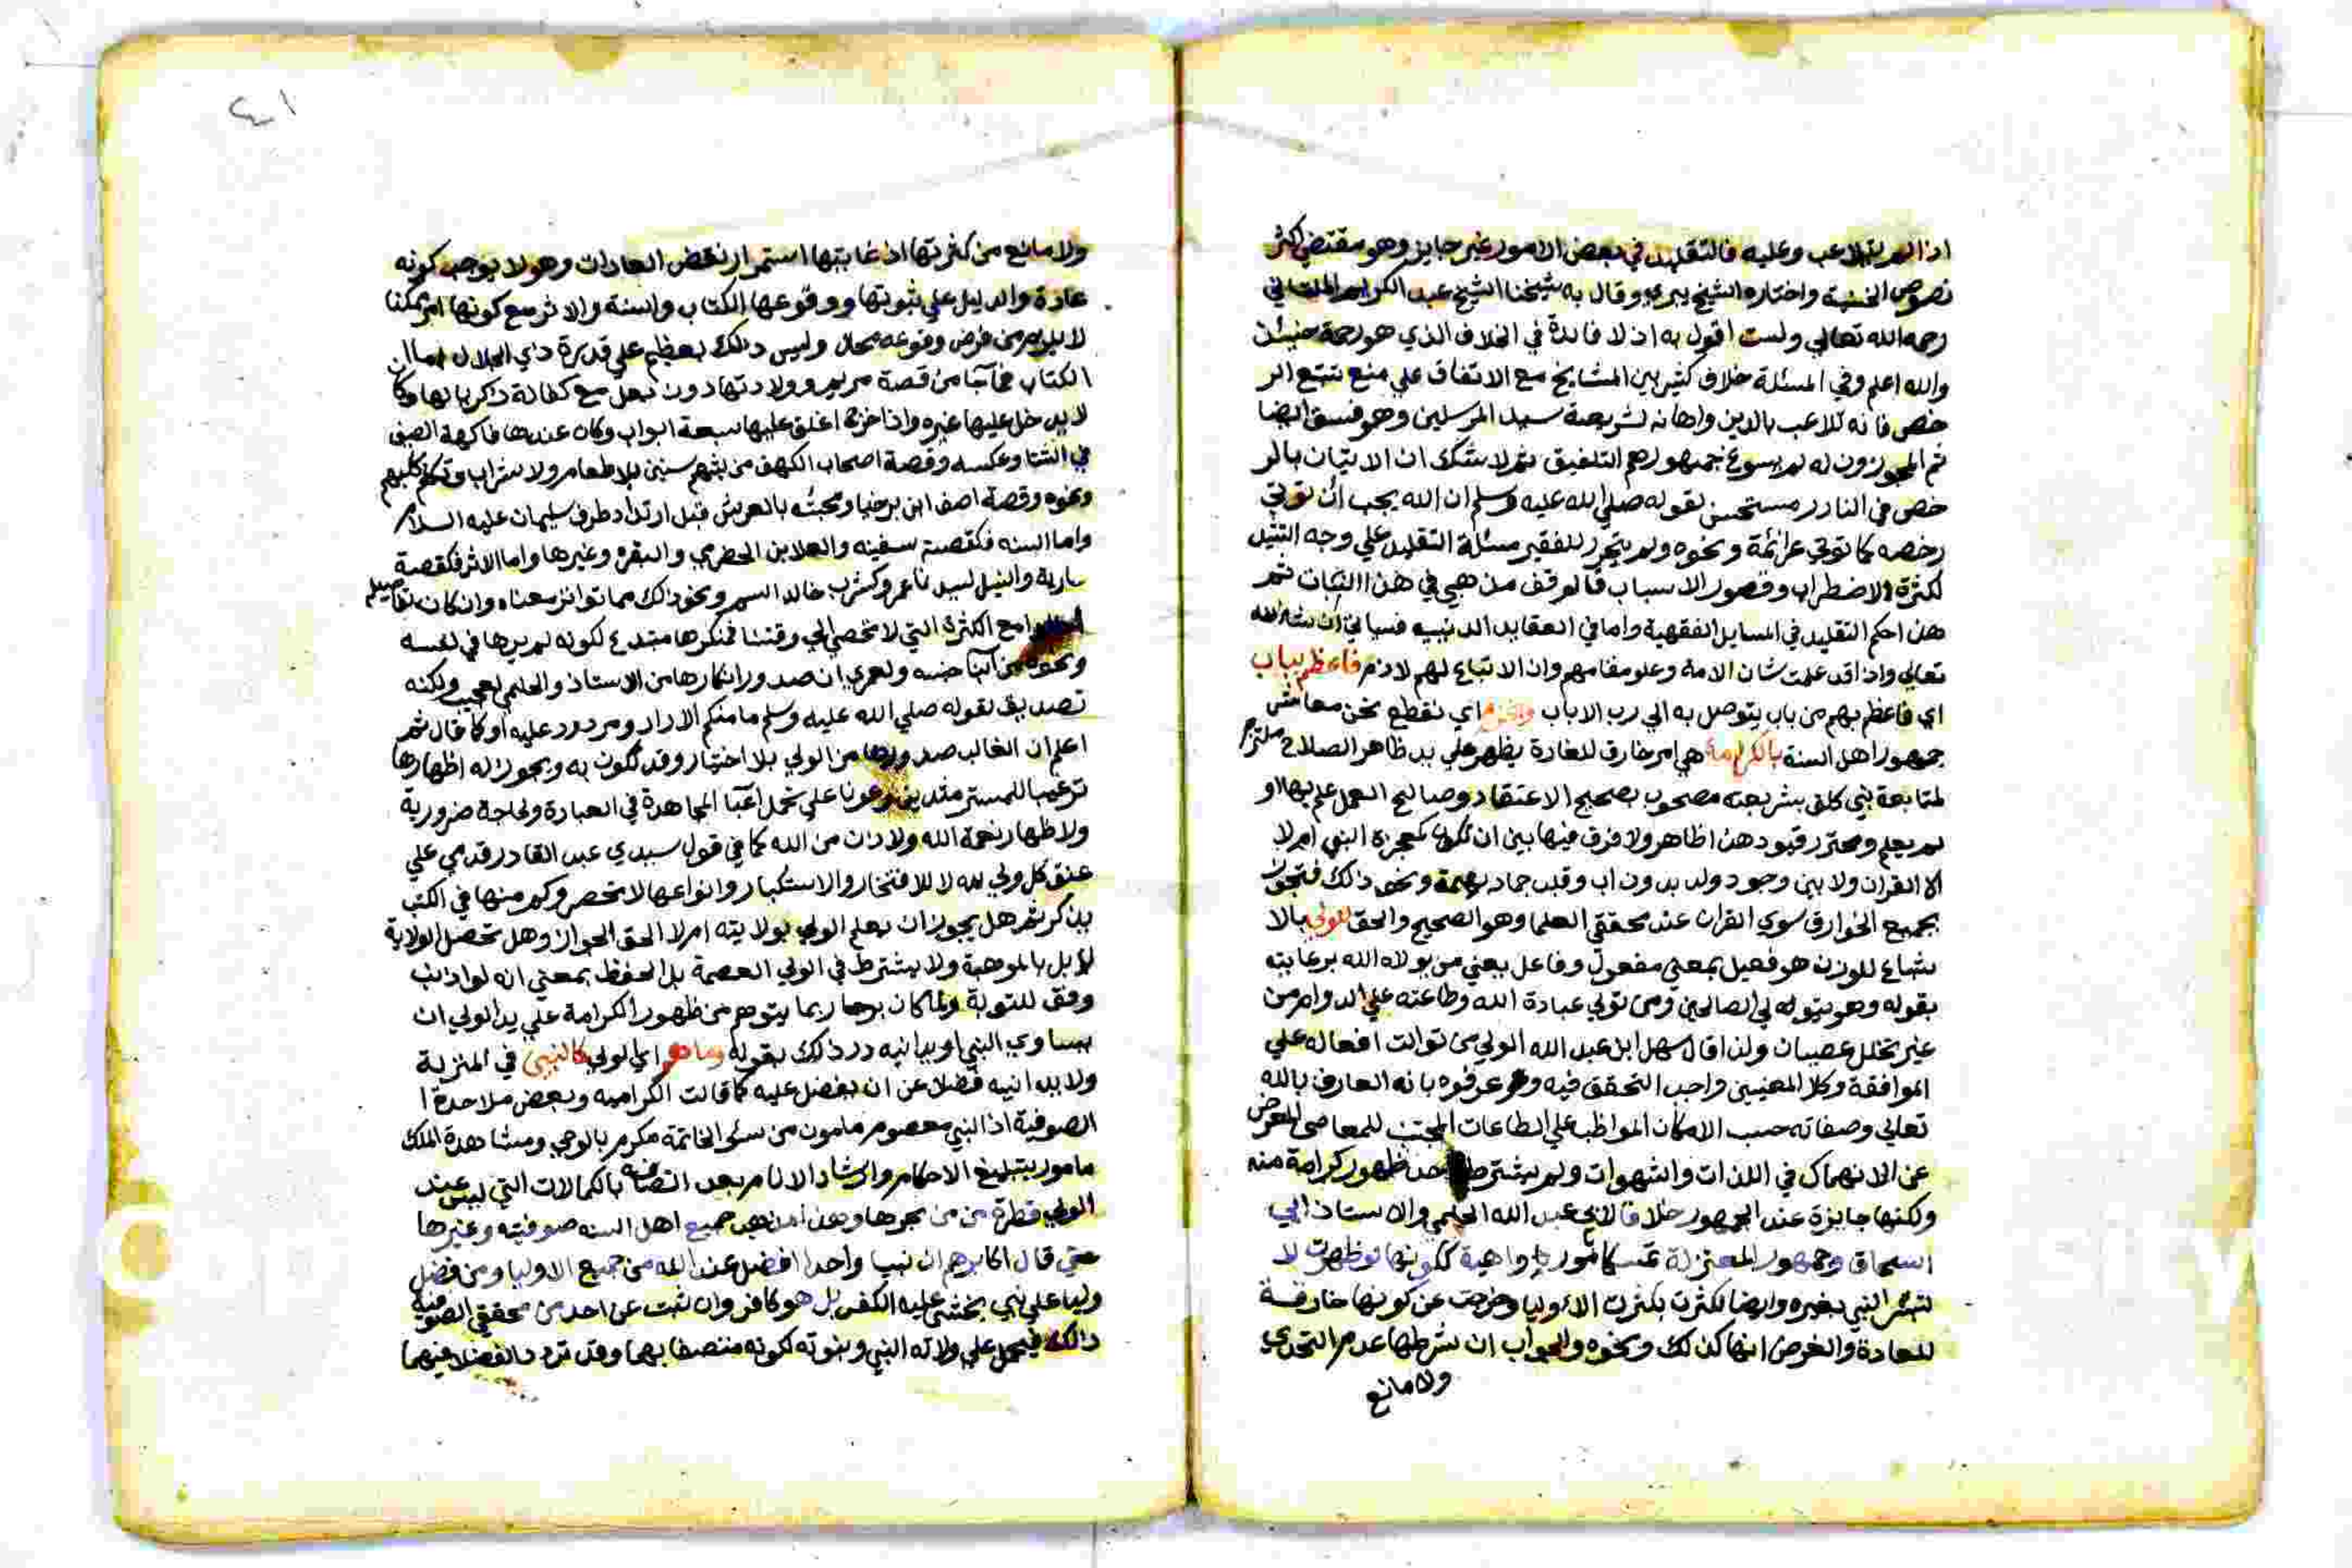 اذا لم يتلاعب وعليه فالتقليد في بعض الامور غير جايز وهو مقتضي اكثر
نصوص واختاره الشيخ بيري وقال به شيخنا الشيخ عبد الكريم الملتاني
رحمه الله تعالي ولست اقول به اذ لا فايدة في الخلاف الذي هو رحمة حينئذ
والله اعلم وفي المسئلة خلاف كثير بين المشايخ مع الاتفاق علي منع تتبع الر
خص فانه تلاعب بالدين واهانه لشريعة سيد المرسلين وهو فسق ايضا
ثم المجوزون له لم يسوغ جمهورهم التلفيق ثم لا شك ان الاتيان بالر
خص في النادر مستحسن لقوله صلي الله عليه وسلم ان الله يحب ان توتي
رخصه كما توتي عزائمة ونحوه ولم يتحرر للفقير مسئلة التقليد علي وجه
لكثرة الاضطراب وقصور الاسباب فالوقف مذهبي في هذا ثم
هذا حكم التقليد في المسايل الفقهية واما في العقايد الدينيه فسياتي ان شا الله
تعالي واذا قد علمت شان الامة وعلو مقامهم وان الاتباع لهم لازم فاعظم بباب
اي فاعظم بهم من باب يتوصل به الي رب الارباب ونجزم اي نقطع نحن معاشر
جمهور اهل السنة بالكرامة هي امر خارق للعادة يظهر علي يد ظاهر الصلاح ملتزم
لمتابعة نبي كلف بشريعته مصحوب بصحيح الاعتقاد وصالح العمل علم بها او
لم يعلم ومحترز قيود هذا ظاهر ولا فرق فيها بين ان تكون كمعجزة النبي ام لا
الا القران ولا بين وجود ولد بدون اب وقلب جماد بهيمة ونحو ذالك فتجوز
بجميع الخوارق سوي القران عند محققي العلما وهو الصحيح والحق للولي بالا
شباع للوزن هو فعيل بمعني مفعول وفاعل يعني من يولاه الله برعايته
بقوله وهو يتولي الصالحين ومن تولي عبادة الله وطاعته علي الدوام من
غير تخلل عصيان ولذا قال سهل ابن عبد الله الولي من توالت افعاله علي
الموافقة وكلا المعنيين واجب التحقق فيه وعرفوه بانه العارف بالله
تعالي وصفاته حسب الامكان المواظب علي الطاعات المجتنب للمعاصي المعرض
عن الانهماك في اللذات والشهوات ولم يشترط احد ظهور كرامة منه
ولكنها جايزة عند الجمهور خلافا لابي عبد الله الحليمي والاستاذ ابي
اسحاق وجمهور المعتزلة تمسكا بامور واهية ككونها لو ظهرت لا
لتبس النبي بغيره وايضا لكثرت بكثرت الاوليا وخرجت عن كونها خارقة
للعادة والغرض انها كذلك ونحوه والجواب ان شرطها عدم التحدي
ولا مانع
٤١
ولا مانع من كثرتها اذ غايتها استمرار نقض العادات وهو لا يوجب كونه
عادة والدليل علي ثبوتها ووقوعها الكتاب والسنة والاثر مع كونها امر ممكنا
لا يلزم من فرض وقوعه محال وليس ذلك بعظيم علي قدرة ذي الجلال اما
الكتاب فما من قصة مريم وولادتها دون بعل مع كفالة ذكريا لها وكا
لا يدخل عليها غيره واذا خرج اغلق عليها سبعة ابواب وكان عندها فاكهة الصيف
في الشتا وعكسه وقصة اصحاب الكهف من سنين بلا طعام ولا شراب وتكلم كلبهم
ونحوه وقصة اصف ابن برخيا ومجئه بالعرش قبل ارتداد طرف سليمان عليه السلام
واما السنه فكقصة سفينه والعلا بن الحضرمي والبقره وغيرها واما الاثر فكقصة
سارية والنيل وكشرب خالد السم ونحو ذالك مما تواتر معناه وان كان تفاصيله
الكثرة التي لا تحصي الي وقتنا فمنكرها مبتدع لكونه لم يرها في نفسه
ونحوه من ابنا جنسه ولعمري ان صدور انكارها من الاستاذ والحليمي لعجيب ولكنه
تصديق لقوله صلي الله عليه وسلم ما منكم الا راد ومردود عليه او كما قال ثم
اعلم ان الغالب صدورها من الولي بلا اختيار وقد تكون به ويجوز له اظهارها
ترغيبا للمسترشدين وعونا علي تحمل اعبا المجاهدة في العبادة ولحاجة ضرورية
ولاظهار نعمة الله ولاذن من الله كما في قول سيدي عبد القادر قدمي علي
عنق كل ولي لله لا للافتخار والاستكبار وانواعها لا تنحصر وكم منها في الكتب
يذكر ثم هل يجوز ان يعلم الولي بولايته ام لا الحق الجواز وهل تحصل الولاية
لا بل بالموهبة ولا يشترط في الولي العصمة بل الحفظ بمعني انه لو اذنب
وفق للتوبة ولما كان ربما يتوهم من ظهور الكرامة علي يد الولي ان
يساوي النبي او يدانيه رد ذلك بقوله وما هو اي الولي كالنبي في المنزلة
ولا يدانيه فضلا عن ان يفضل عليه كما قالت الكراميه وبعض ملاحدة ا
الصوفية اذ النبي معصوم مامون من سوء الخاتمة مكرم بالوحي ومشاهدة الملك
مامور بتبليغ الاحكام وارشاد الانام بعد اتصافه بالكمالات التي ليس عند
الولي قطرة من بحرها وهذا مذهب جميع اهل السنه صوفيته وغيرها
حتي قال اكابرهم ان نبيا واحدا افضل عند الله من جميع الاوليا ومن فضل
وليا علي نبي يخشي عليه الكفر بل هو كافر وان ثبت عن احد من محققي الصوفية
ذالك فيحمل علي ولاته النبي ونبوته لكونه متصفا بهما وقد تردد الفضلا فيهما